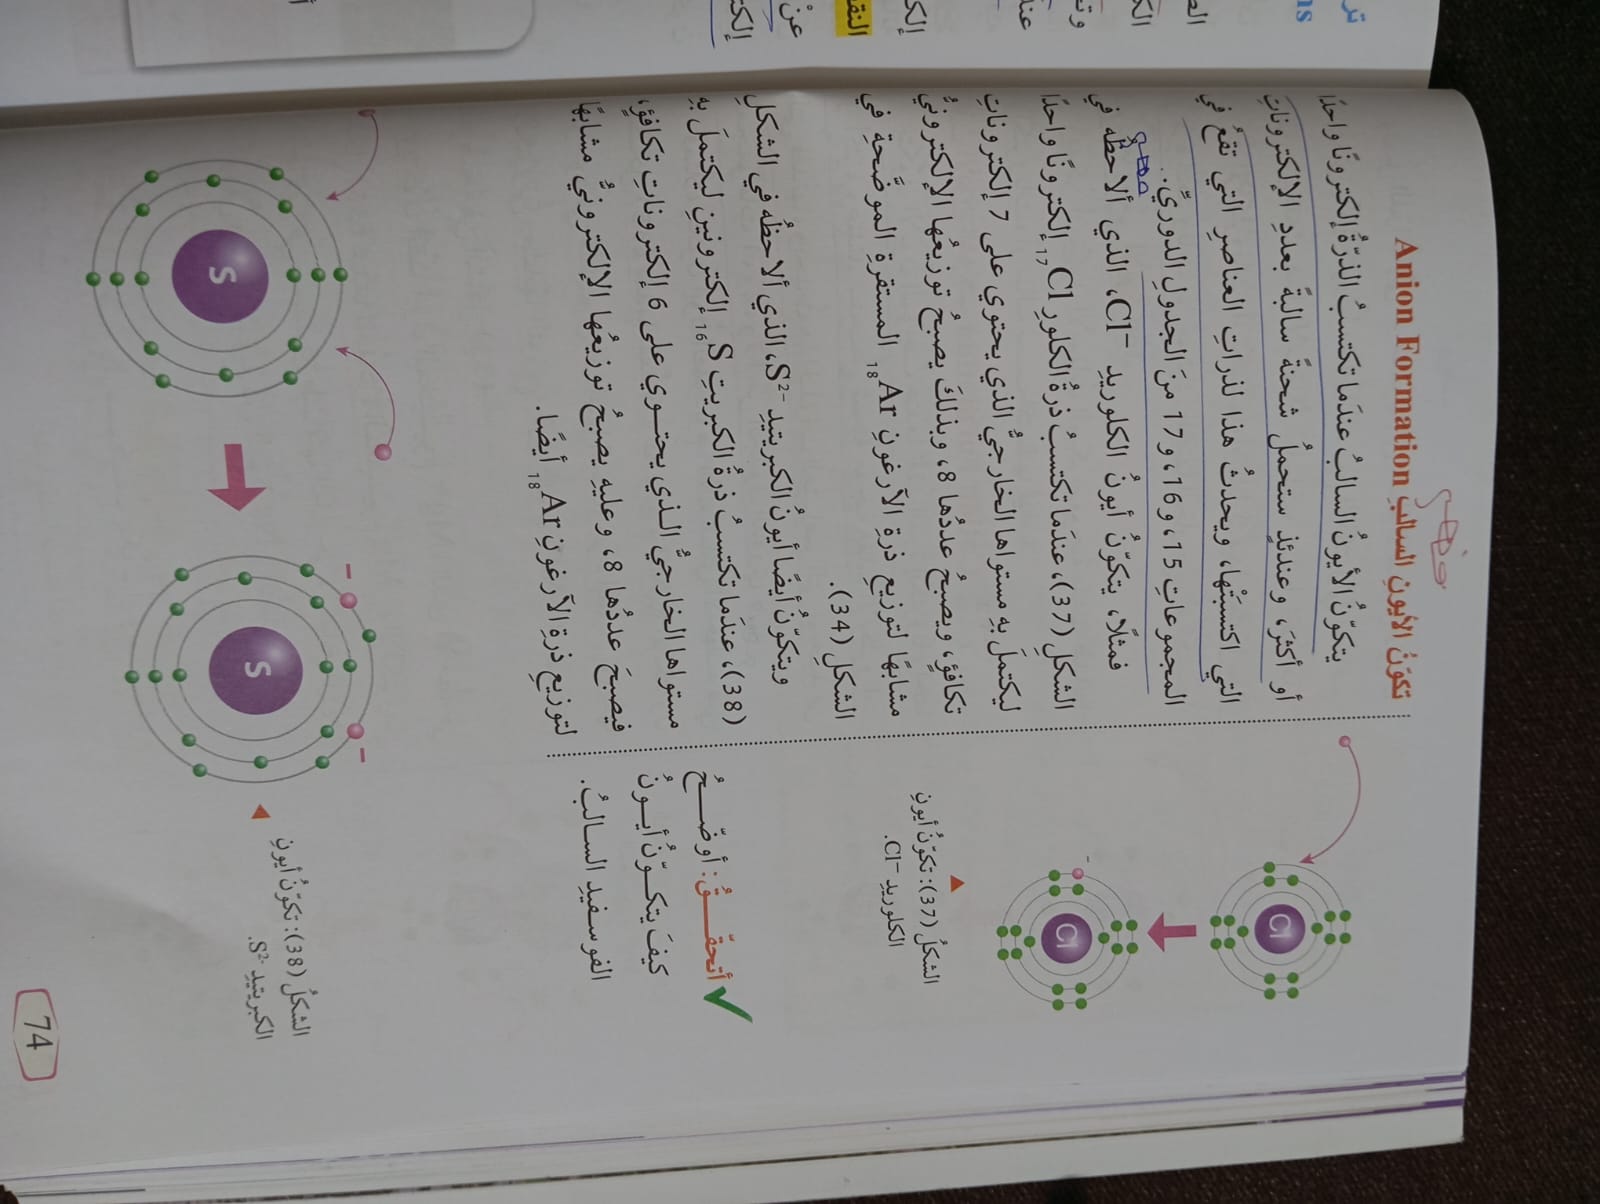 تكوّنُ الأيونِ السالبِ Anion Formation
يتكوّنُ الأيونُ السالبُ عندَما تكتسبُ الذرّةُ إلكترونًا واحدًا
أو أكثرَ، وعندئذٍ ستحملُ شحنةً سالبةً بعددِ الإلكتروناتِ
التي اكتسبَتْها، ويحدثُ هذا لذراتِ العناصرِ التي تقعُ في
المجموعاتِ 15، و16، و17 منَ الجدولِ الدوريِّ.
فمثلًا، يتكوّنُ أيونُ الكلوريدِ Cl⁻، الذي ألاحظُه في
الشكلِ (37)، عندَما تكتسبُ ذرةُ الكلورِ ₁₇Cl إلكترونًا واحدًا
ليكتملَ بهِ مستواها الخارجيُّ الذي يحتوي على 7 إلكتروناتِ
تكافؤٍ، ويصبحُ عددُها 8، وبذلكَ يصبحُ توزيعُها الإلكترونيُّ
مشابهًا لتوزيعِ ذرةِ الآرغونِ ₁₈Ar المستقرةِ الموضَّحةِ في
الشكلِ (34).
ويتكوّنُ أيضًا أيونُ الكبريتيدِ S²⁻، الذي ألاحظُه في الشكلِ
(38)، عندَما تكتسبُ ذرةُ الكبريتِ ₁₆S إلكترونينِ ليكتملَ بهِ
مستواها الخارجيُّ الذي يحتوي على 6 إلكتروناتِ تكافؤٍ،
فيصبحَ عددُها 8، وعليهِ يصبحُ توزيعُها الإلكترونيُّ مشابهًا
لتوزيعِ ذرةِ الآرغونِ ₁₈Ar أيضًا.
Cl
Cl
الشكلُ (37): تكوّنُ أيونِ
الكلوريدِ Cl⁻.
أتحقّقُ: أوضّحُ
كيفَ يتكوّنُ أيونُ
الفوسفيدِ السالبُ.
S
S
الشكلُ (38): تكوّنُ أيونِ
الكبريتيدِ S²⁻.
74